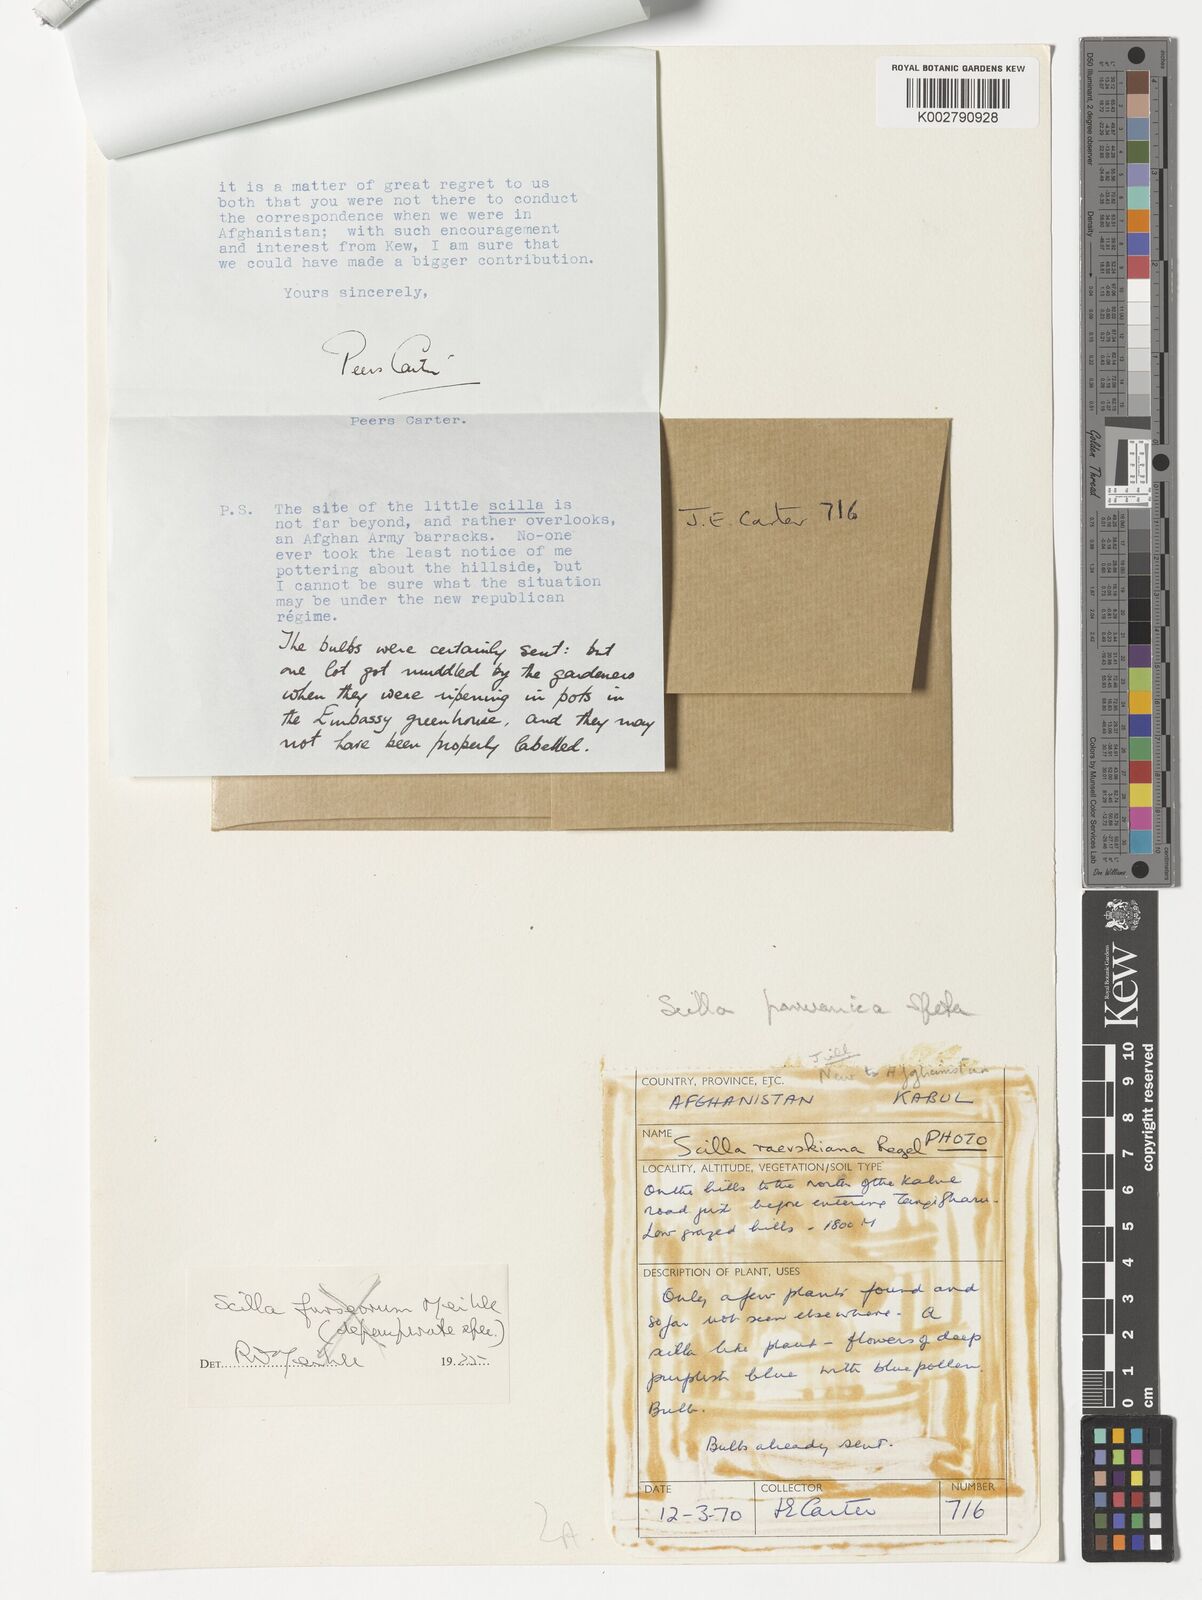 ROYAL BOTANIC GARDENS KEW
K002790928
it is a matter of great regret to us
both that you were not there to conduct
the correspondence when we were in
Afghanistan; with such encouragement
and interest from Kew, I am sure that
we could have made a bigger contribution.
Yours sincerely,
Peers Carter
Peers Carter.
P.S. The site of the little scilla is
not far beyond, and rather overlooks,
an Afghan Army barracks. No-one
ever took the least notice of me
pottering about the hillside, but
I cannot be sure what the situation
may be under the new republican
régime.
The bulbs were certainly sent: but
one lot got muddled by the gardeners
when they were ripening in pots in
the Embassy greenhouse, and they may
not have been properly labelled.
J.E. Carter 716
Scilla
New to Afghanistan
COUNTRY, PROVINCE, ETC.
AFGHANISTAN KABUL
NAME
Scilla raevskiana Regel PHOTO
LOCALITY, ALTITUDE, VEGETATION/SOIL TYPE
On the hills to the north of the Kabul
road just before entering Tangi Gharu.
Low grazed hills - 1800 M
DESCRIPTION OF PLANT, USES
Only a few plants found and
so far not seen elsewhere. A
scilla like plant - flowers of deep
purplish blue with blue pollen.
Bulb.
Bulbs already sent.
DATE COLLECTOR NUMBER
12-3-70 JE Carter 716
Scilla furseorum Meikle
DET. RD Meikle 19
Kew
Royal Botanic Gardens
copyright reserved
0 1 2 3 4 5 6 7 8 9 10
cm
D50 Illuminant, 2 degree observer
Density
Golden Thread
Colors by Munsell Color Services Lab
Don Williams
inches
centimeters